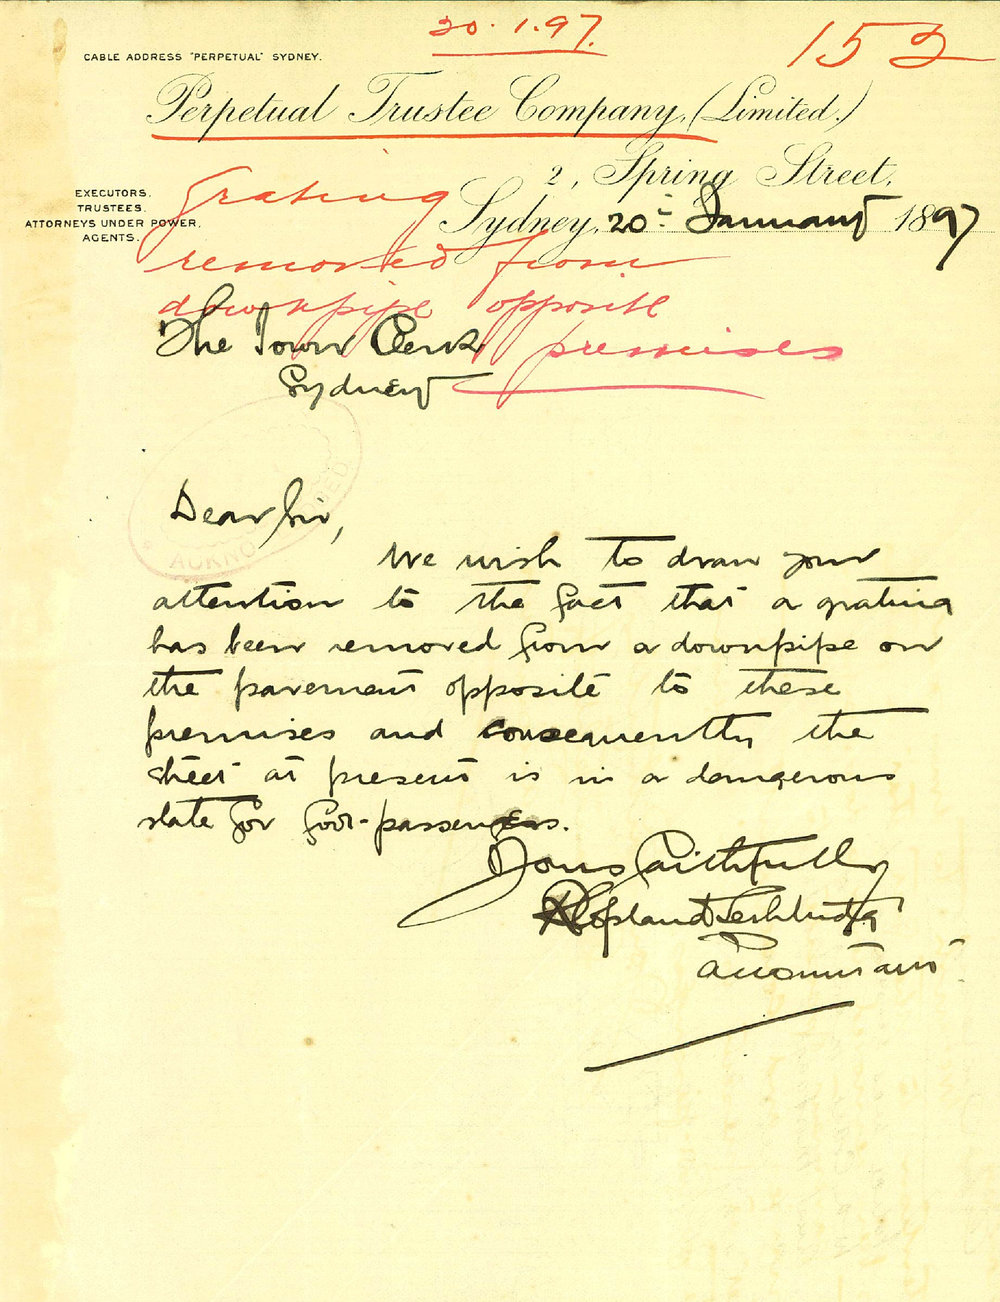 20.1.97.
153
CABLE ADDRESS "PERPETUAL" SYDNEY.
Perpetual Trustee Company, (Limited.)
2, Spring Street,
EXECUTORS.
TRUSTEES.
ATTORNEYS UNDER POWER.
AGENTS.
Sydney, 20 January 1897
Grating
removed from
downpipe opposite
premises
The Town Clerk
Sydney
ACKNOWLEDGED
Dear Sir,
We wish to draw your
attention to the fact that a grating
has been removed from a downpipe on
the pavement opposite to these
premises and consequently the
street at present is in a dangerous
state for foot-passengers.
Yours faithfully
Accountant